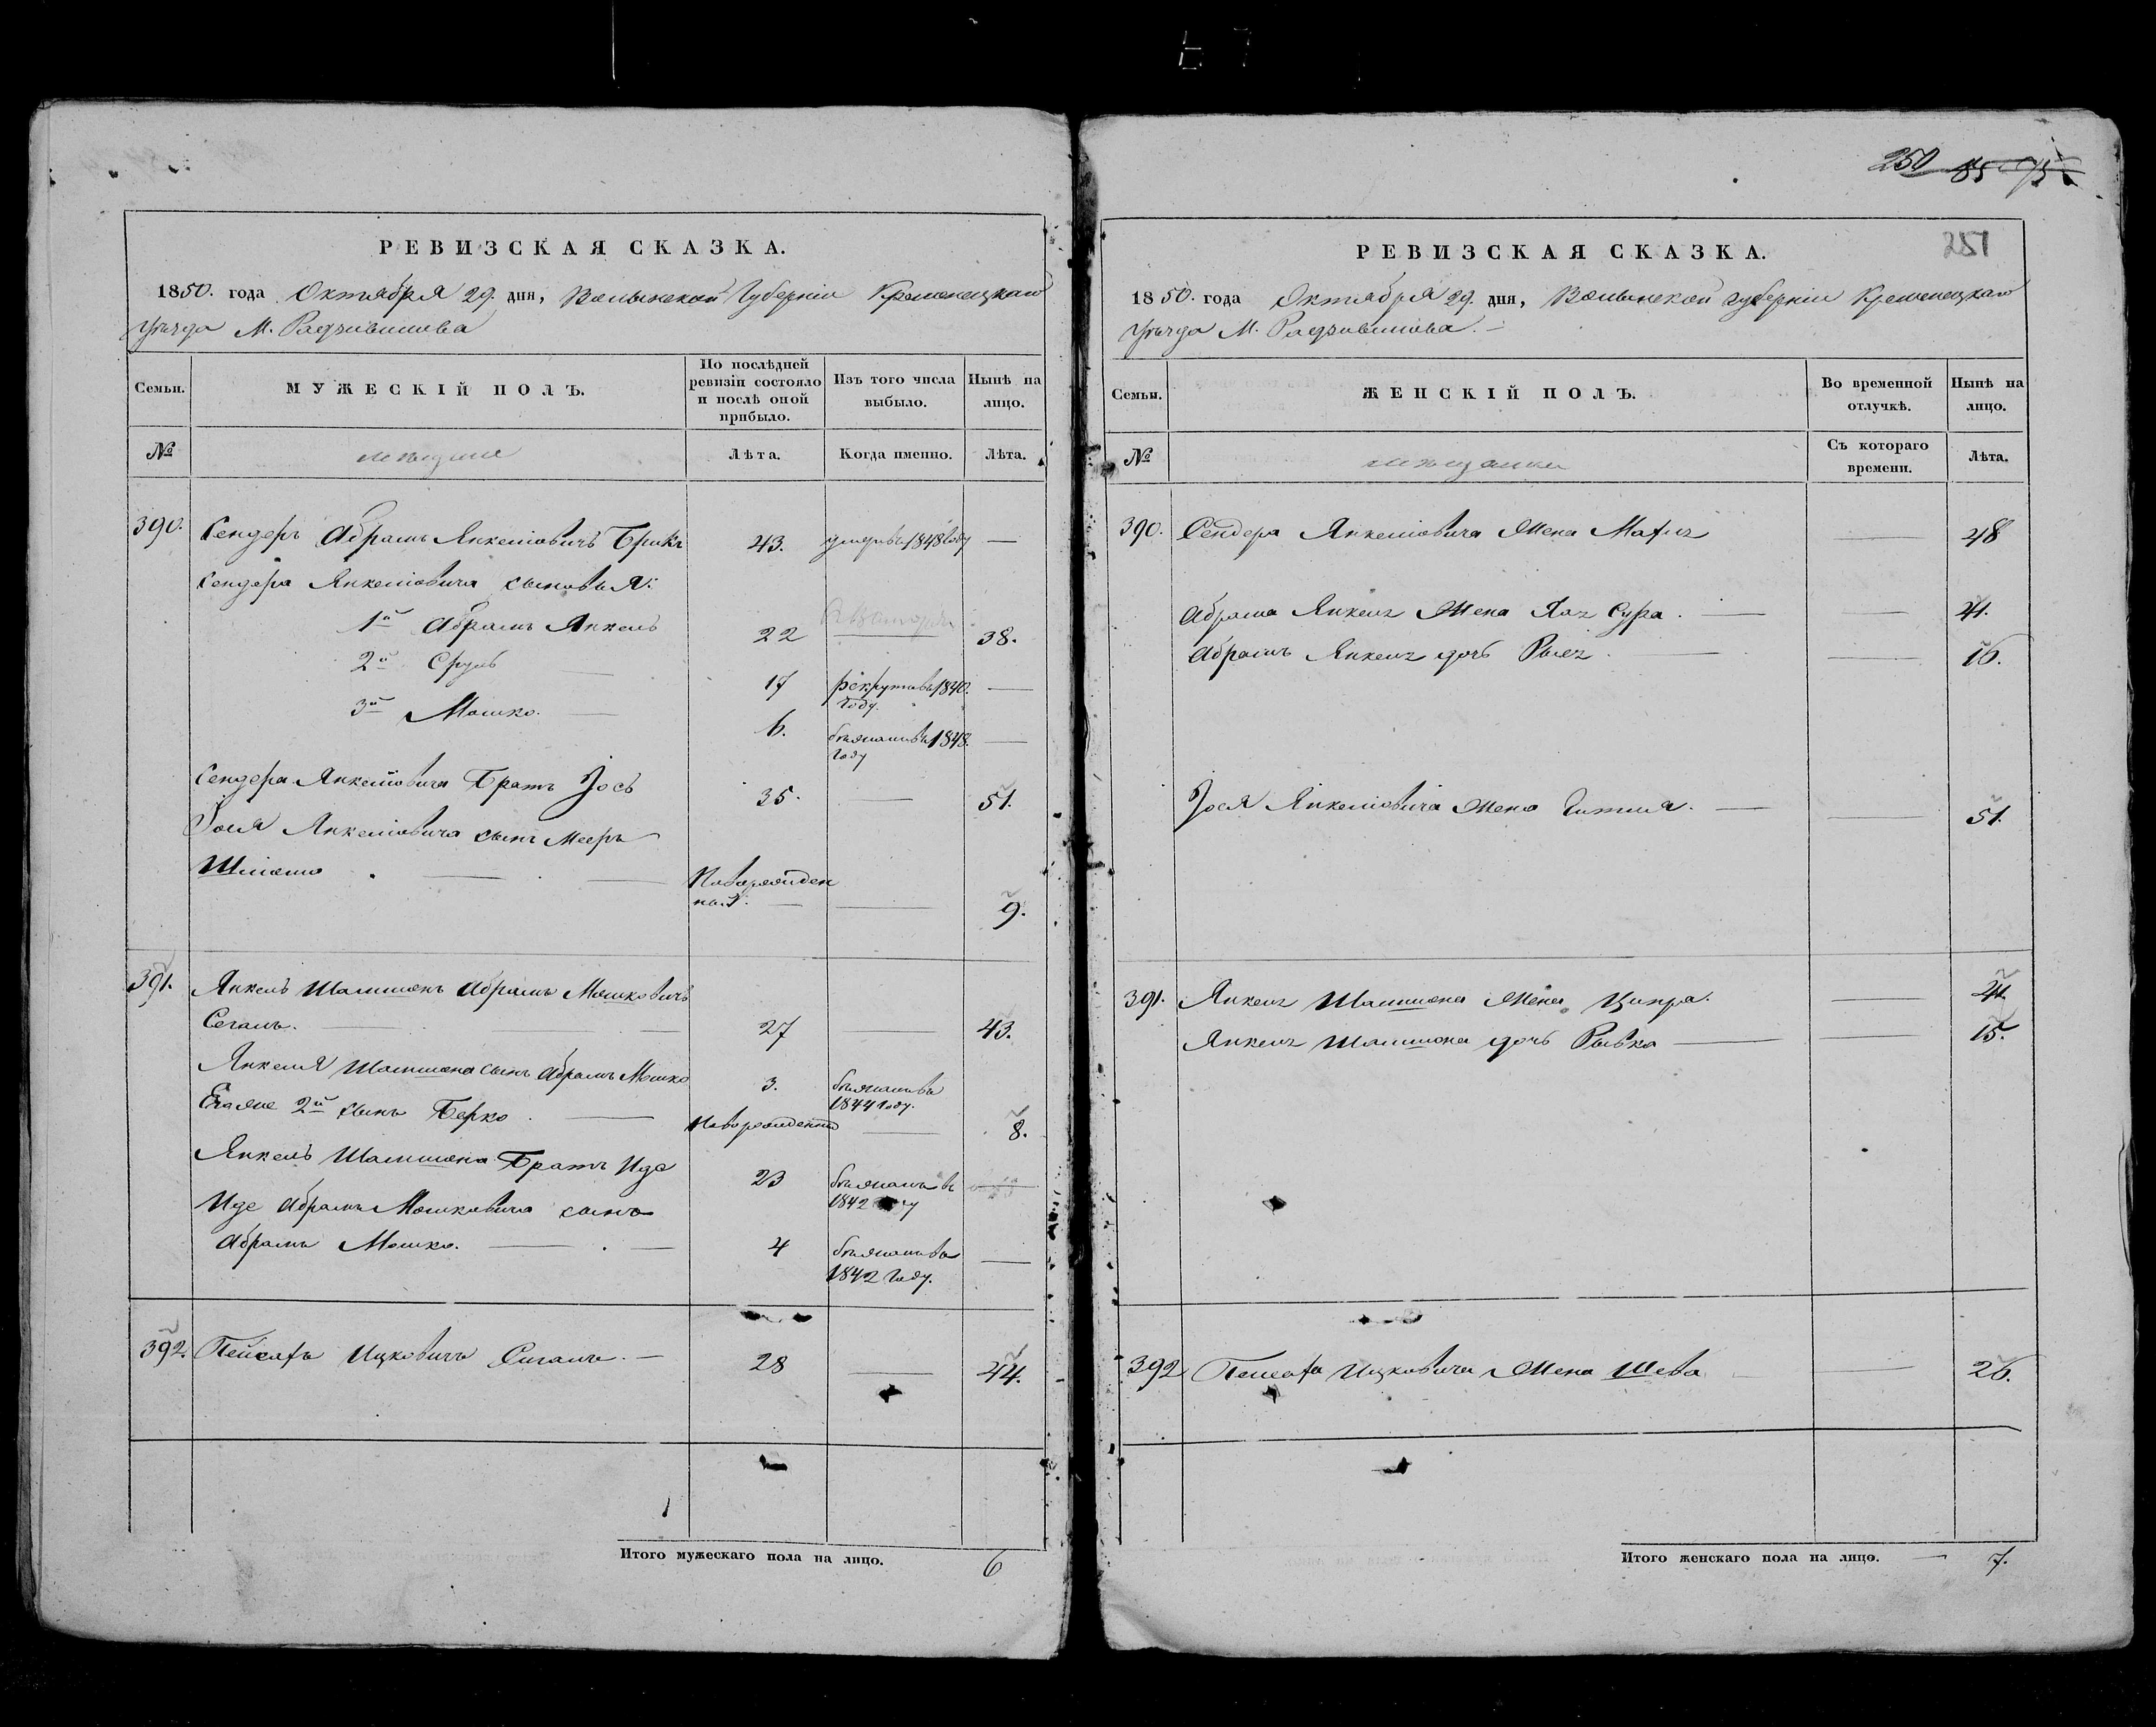 250 85 95
РЕВИЗСКАЯ СКАЗКА.
1850. года Октября 29. дня, Волынской Губерніи Кременецкаго
Уѣзда М. Радзивилова
Семьи.
МУЖЕСКІЙ ПОЛЪ.
По послѣдней ревизіи состояло и послѣ оной прибыло.
Изъ того числа выбыло.
Нынѣ на лицо.
№
мѣщане
Лѣта.
Когда именно.
Лѣта.
390. Сендеръ Абрамъ Янкеліовичъ Брикъ 43. умеръ въ 1848 году —
Сендера Янкеліовича сыновья:
1й Абрамъ Янкель 22 38.
2й Сруль 17 рекрутовъ 1840. году. —
3й Мошко. 6. бѣжалъ въ 1848. году —
Сендера Янкеліовича Братъ Іось 35. — 51.
Іося Янкеліовича сынъ Мееръ
Шліомо — Новорожденный. — 9.
391. Янкель Шамшонъ Абрамъ Мошковичъ
Сегаль. — 27 — 43.
Янкеля Шамшона сынъ Абрамъ Мошко 3. бѣжалъ въ 1844 году.
Егоже 2й сынъ Берко. — Новорожденный — 8.
Янкель Шамшона Братъ Иде 23 бѣжалъ въ 1842 году —
Иде Абрамъ Мошковича сынъ
Абрамъ Мошко. — 4 бѣжалъ въ 1842 году. —
392. Пейсахъ Ицковичъ Сигалъ. — 28 — 44.
Итого мужескаго пола на лицо. 6
251
РЕВИЗСКАЯ СКАЗКА.
1850. года Октября 29. дня, Волынской губерніи Кременецкаго
Уѣзда М. Радзивилова. —
Семьи.
ЖЕНСКІЙ ПОЛЪ.
Во временной отлучкѣ.
Нынѣ на лицо.
№
мѣщанки
Съ котораго времени.
Лѣта.
390. Сендера Янкеліовича Жена — 48
Абрама Янкеля Жена Хая Сура. — — 41.
Абрамъ Янкеля дочь — — 16.
Іося Янкеліовича Жена Гитля. — — 51.
391. Янкеля Шамшона Жена Ципра. — 41.
Янкеля Шамшона дочь Рывка — — 15.
392 Пейсаха Ицковича Жена Шева — — 26.
Итого женскаго пола на лицо. — 7.